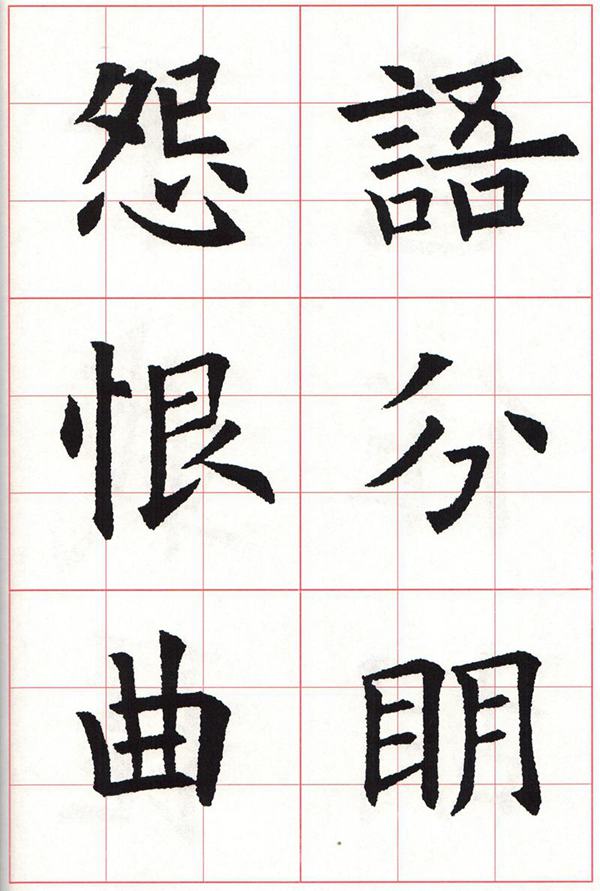 語分眀
怨恨曲